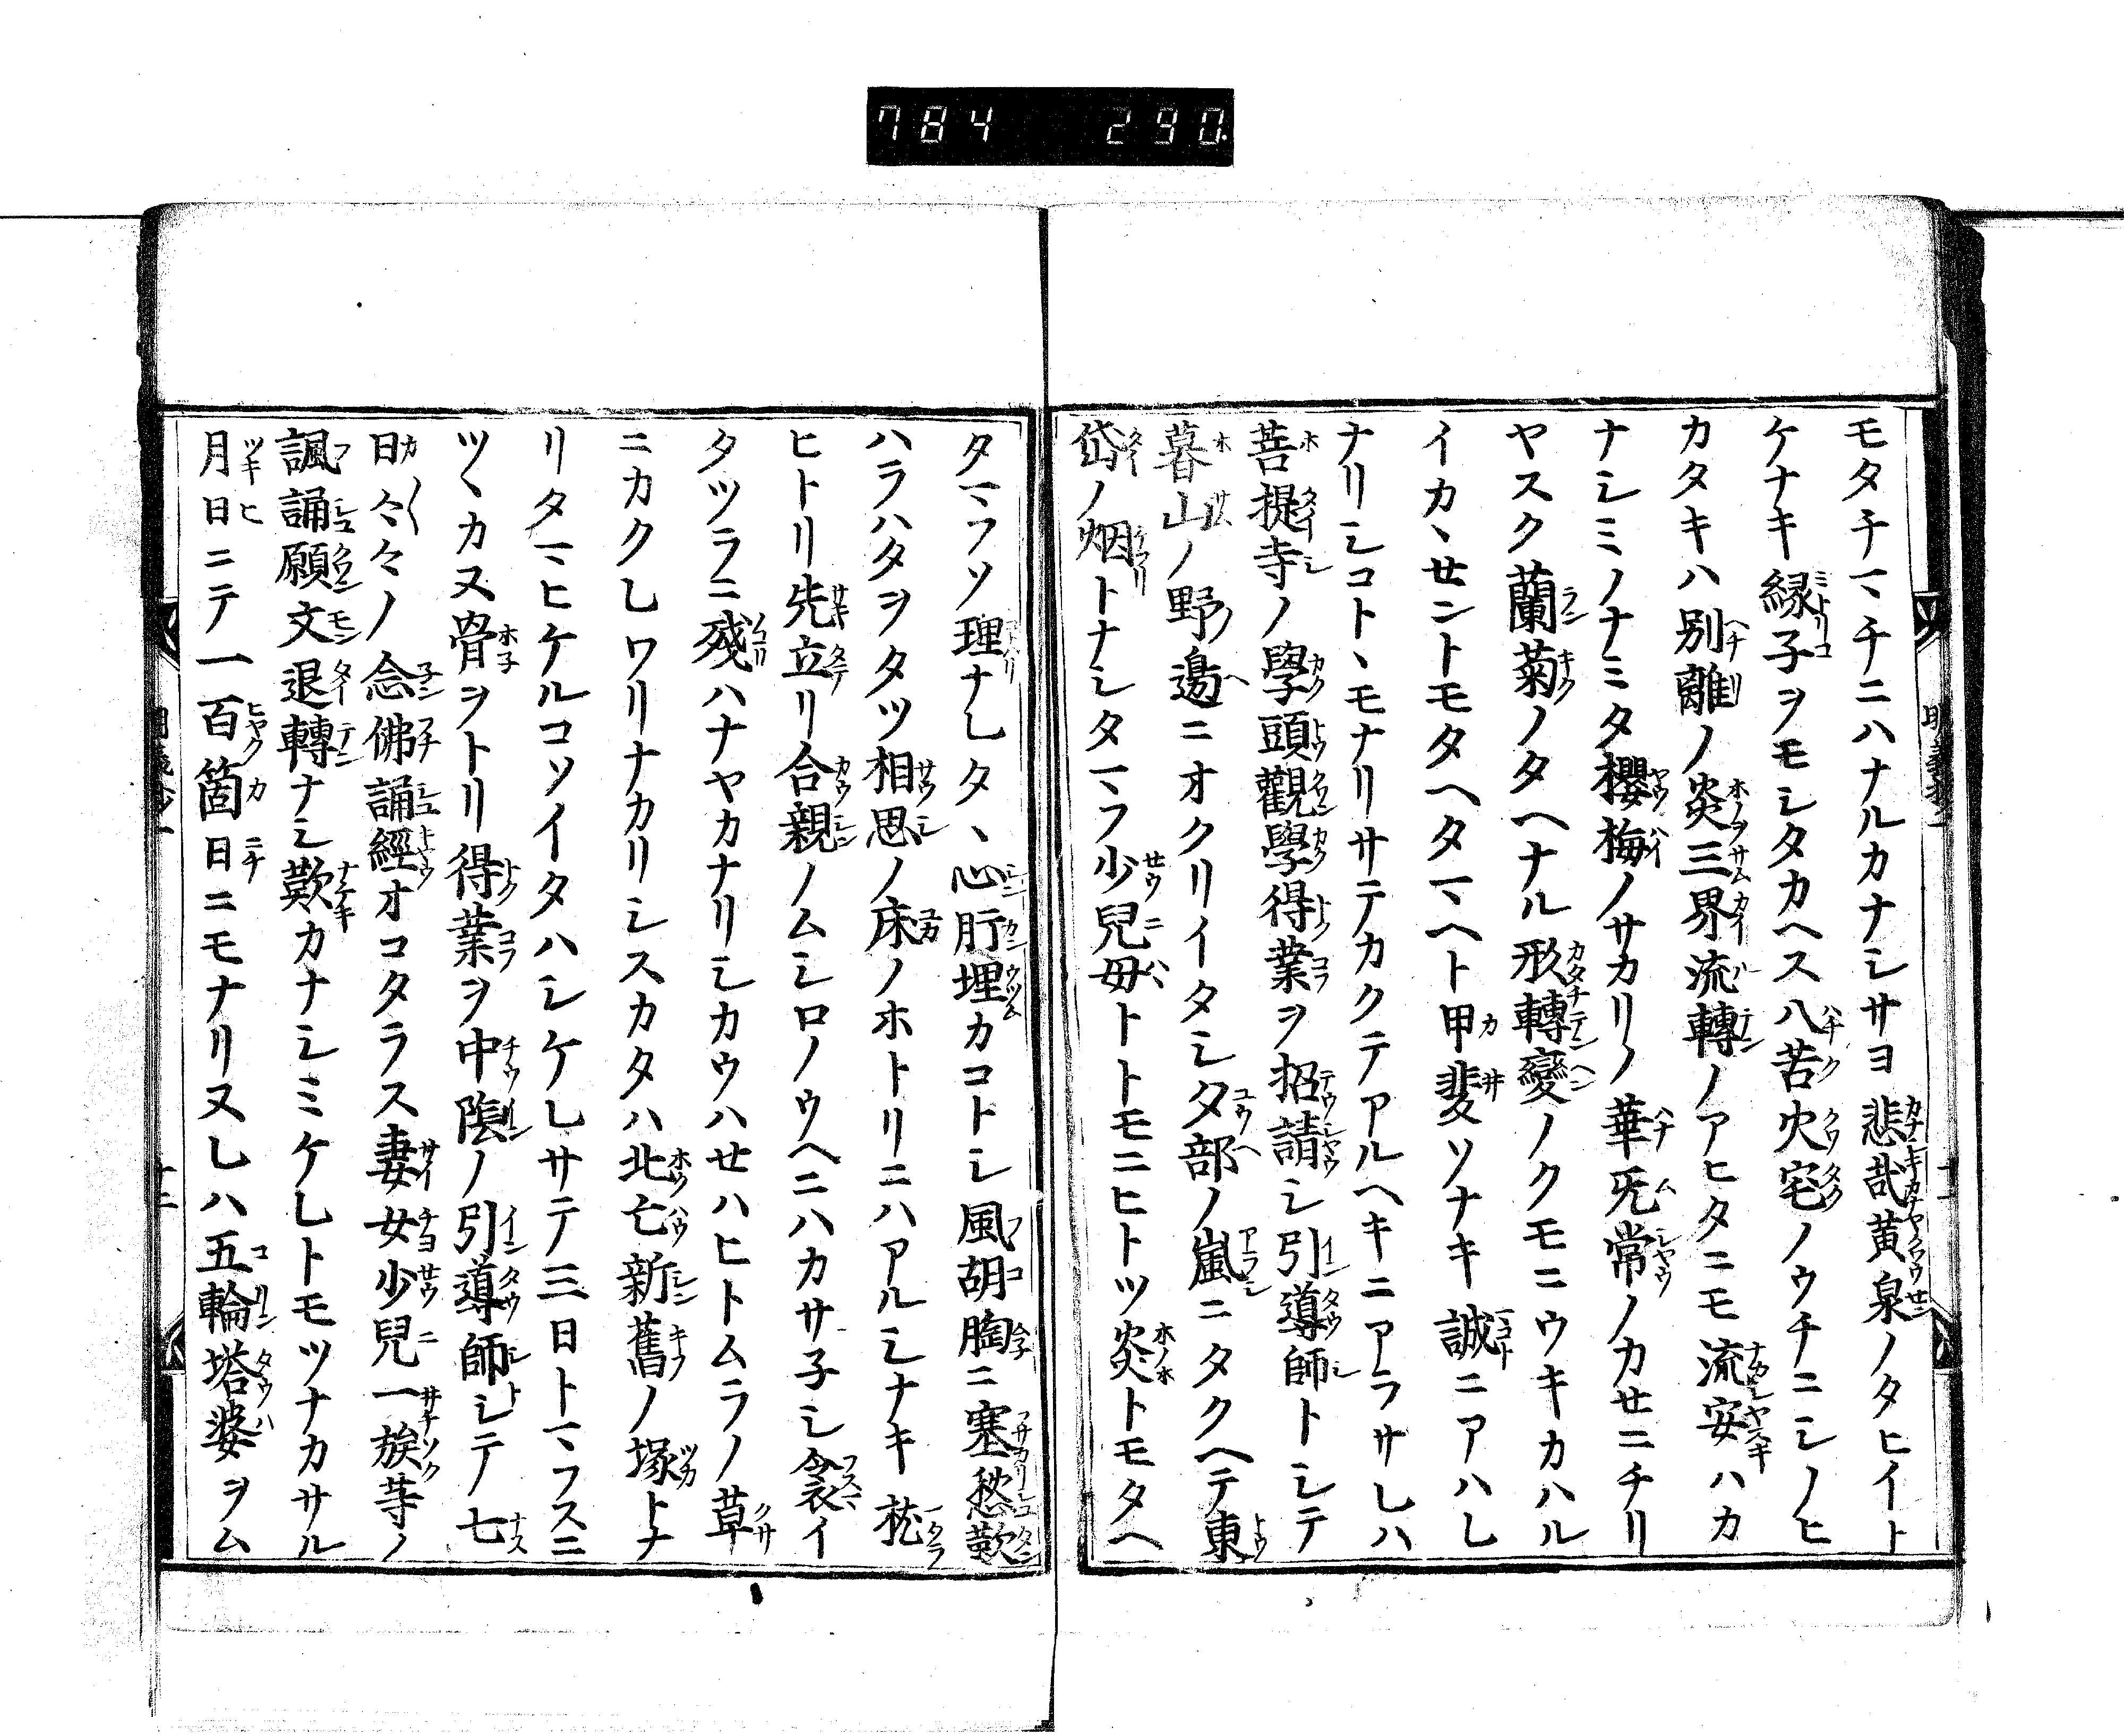 784 290
モタチマヽチニハナルカナシサヨ悲哉黄泉ノタヒイト
ケナキ緑子ヲモシタカヘス八苦火宅ノウチニシノヒ
カタキハ別離ノ炎三界流轉ノアヒタニモ流安ハカ
ナシミノナミタ櫻梅ノサカリノ華旡常ノカセニチリ
ヤスク蘭菊ノタヘナル形轉變ノクモニウキカハル
イカヽセントモタヘタマヘト甲斐ソナキ誠ニアハレ
ナリシコトヽモナリサテカクテアルヘキニアラサレハ
菩提寺ノ學頭觀學得業ヲ招請シ引導師トシテ
暮山ノ野邊ニオクリイタシタ部ノ嵐ニタクヘテ東
岱ノ烟トナシタマフ少兒母トトモニヒトツ炎トモタヘ
タマフソ理ナレタヽ心肝埋カコトシ風胡胸ニ塞愁歎
ハラハタヲタツ相思ノ床ノホトリニハアルシナキ枕
ヒトリ先立リ合親ノムシロノウヘニハカサ子シ衾イ
タツラニ殘ハナヤカナリシカウハセハヒトムラノ草
ニカクレワリナカリシスカタハ北亡新舊ノ塚トナ
リタマヒケルコソイタハシケレサテ三日トマフスニ
ツヽカヌ骨ヲトリ得業ヲ中陰ノ引導師トシテ七
日々々ノ念佛誦經オコタラス妻女少兒一族等ノ
諷誦願文退轉ナシ歎カナシミケレトモツナカサル
月日ニテ一百箇日ニモナリヌレハ五輪塔婆ヲム